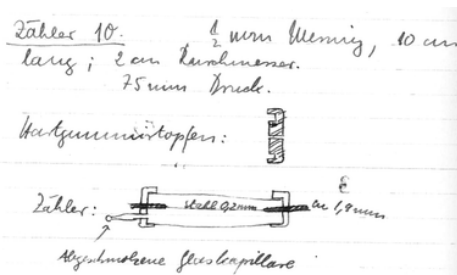 Zähler 10. 1/2 mm Messing, 10 cm
lang; 2 cm Durchmesser.
75 mm Druck.
Hartgummistopfen:
Zähler: Stahl 0,2 mm ca 1,9 mm
Abgeschmolzene Glaskapillare